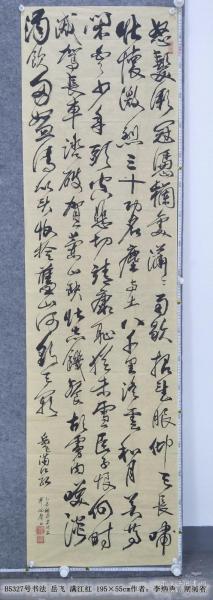 怒髮衝冠憑欄處瀟瀟雨歇抬望眼仰天長嘯
壯懷激烈三十功名塵與土八千里路雲和月莫等
閑白少年頭空悲切靖康恥猶未雪臣子恨何時
滅駕長車踏破賀蘭山缺壯志饑餐胡虜肉笑談
渴飲匈奴血待從頭收拾舊山河朝天闕
岳飛滿江紅
B5327号书法 岳飞 满江红 195×55cm作者：李 湖南省